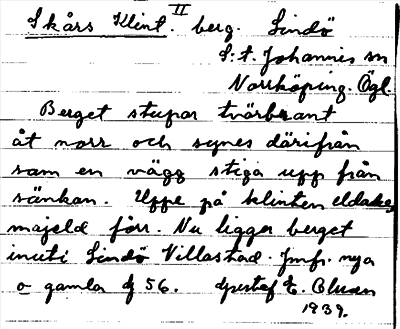 II
Skårs Klint. berg. Lindö
S:t. Johannis sn
Norrköping. Ögl.
Berget stupar tvärbrant
åt norr och synes därifrån
som en vägg stiga upp från
sänkan. Uppe på klinten eldades
majeld förr. Nu ligger berget
inuti Lindö Villastad. Jmf. nya
o gamla 56. Gustaf E. Bluan
1939.